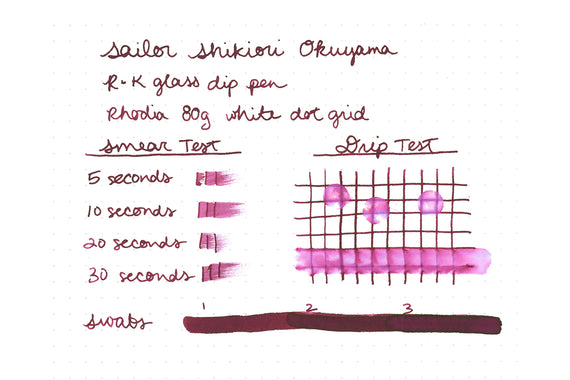 Sailor Shikiori Okuyama
R-K glass dip pen
Rhodia 80g white dot grid
Smear Test
Drip Test
5 seconds
10 seconds
20 seconds
30 seconds
1 2 3
swabs